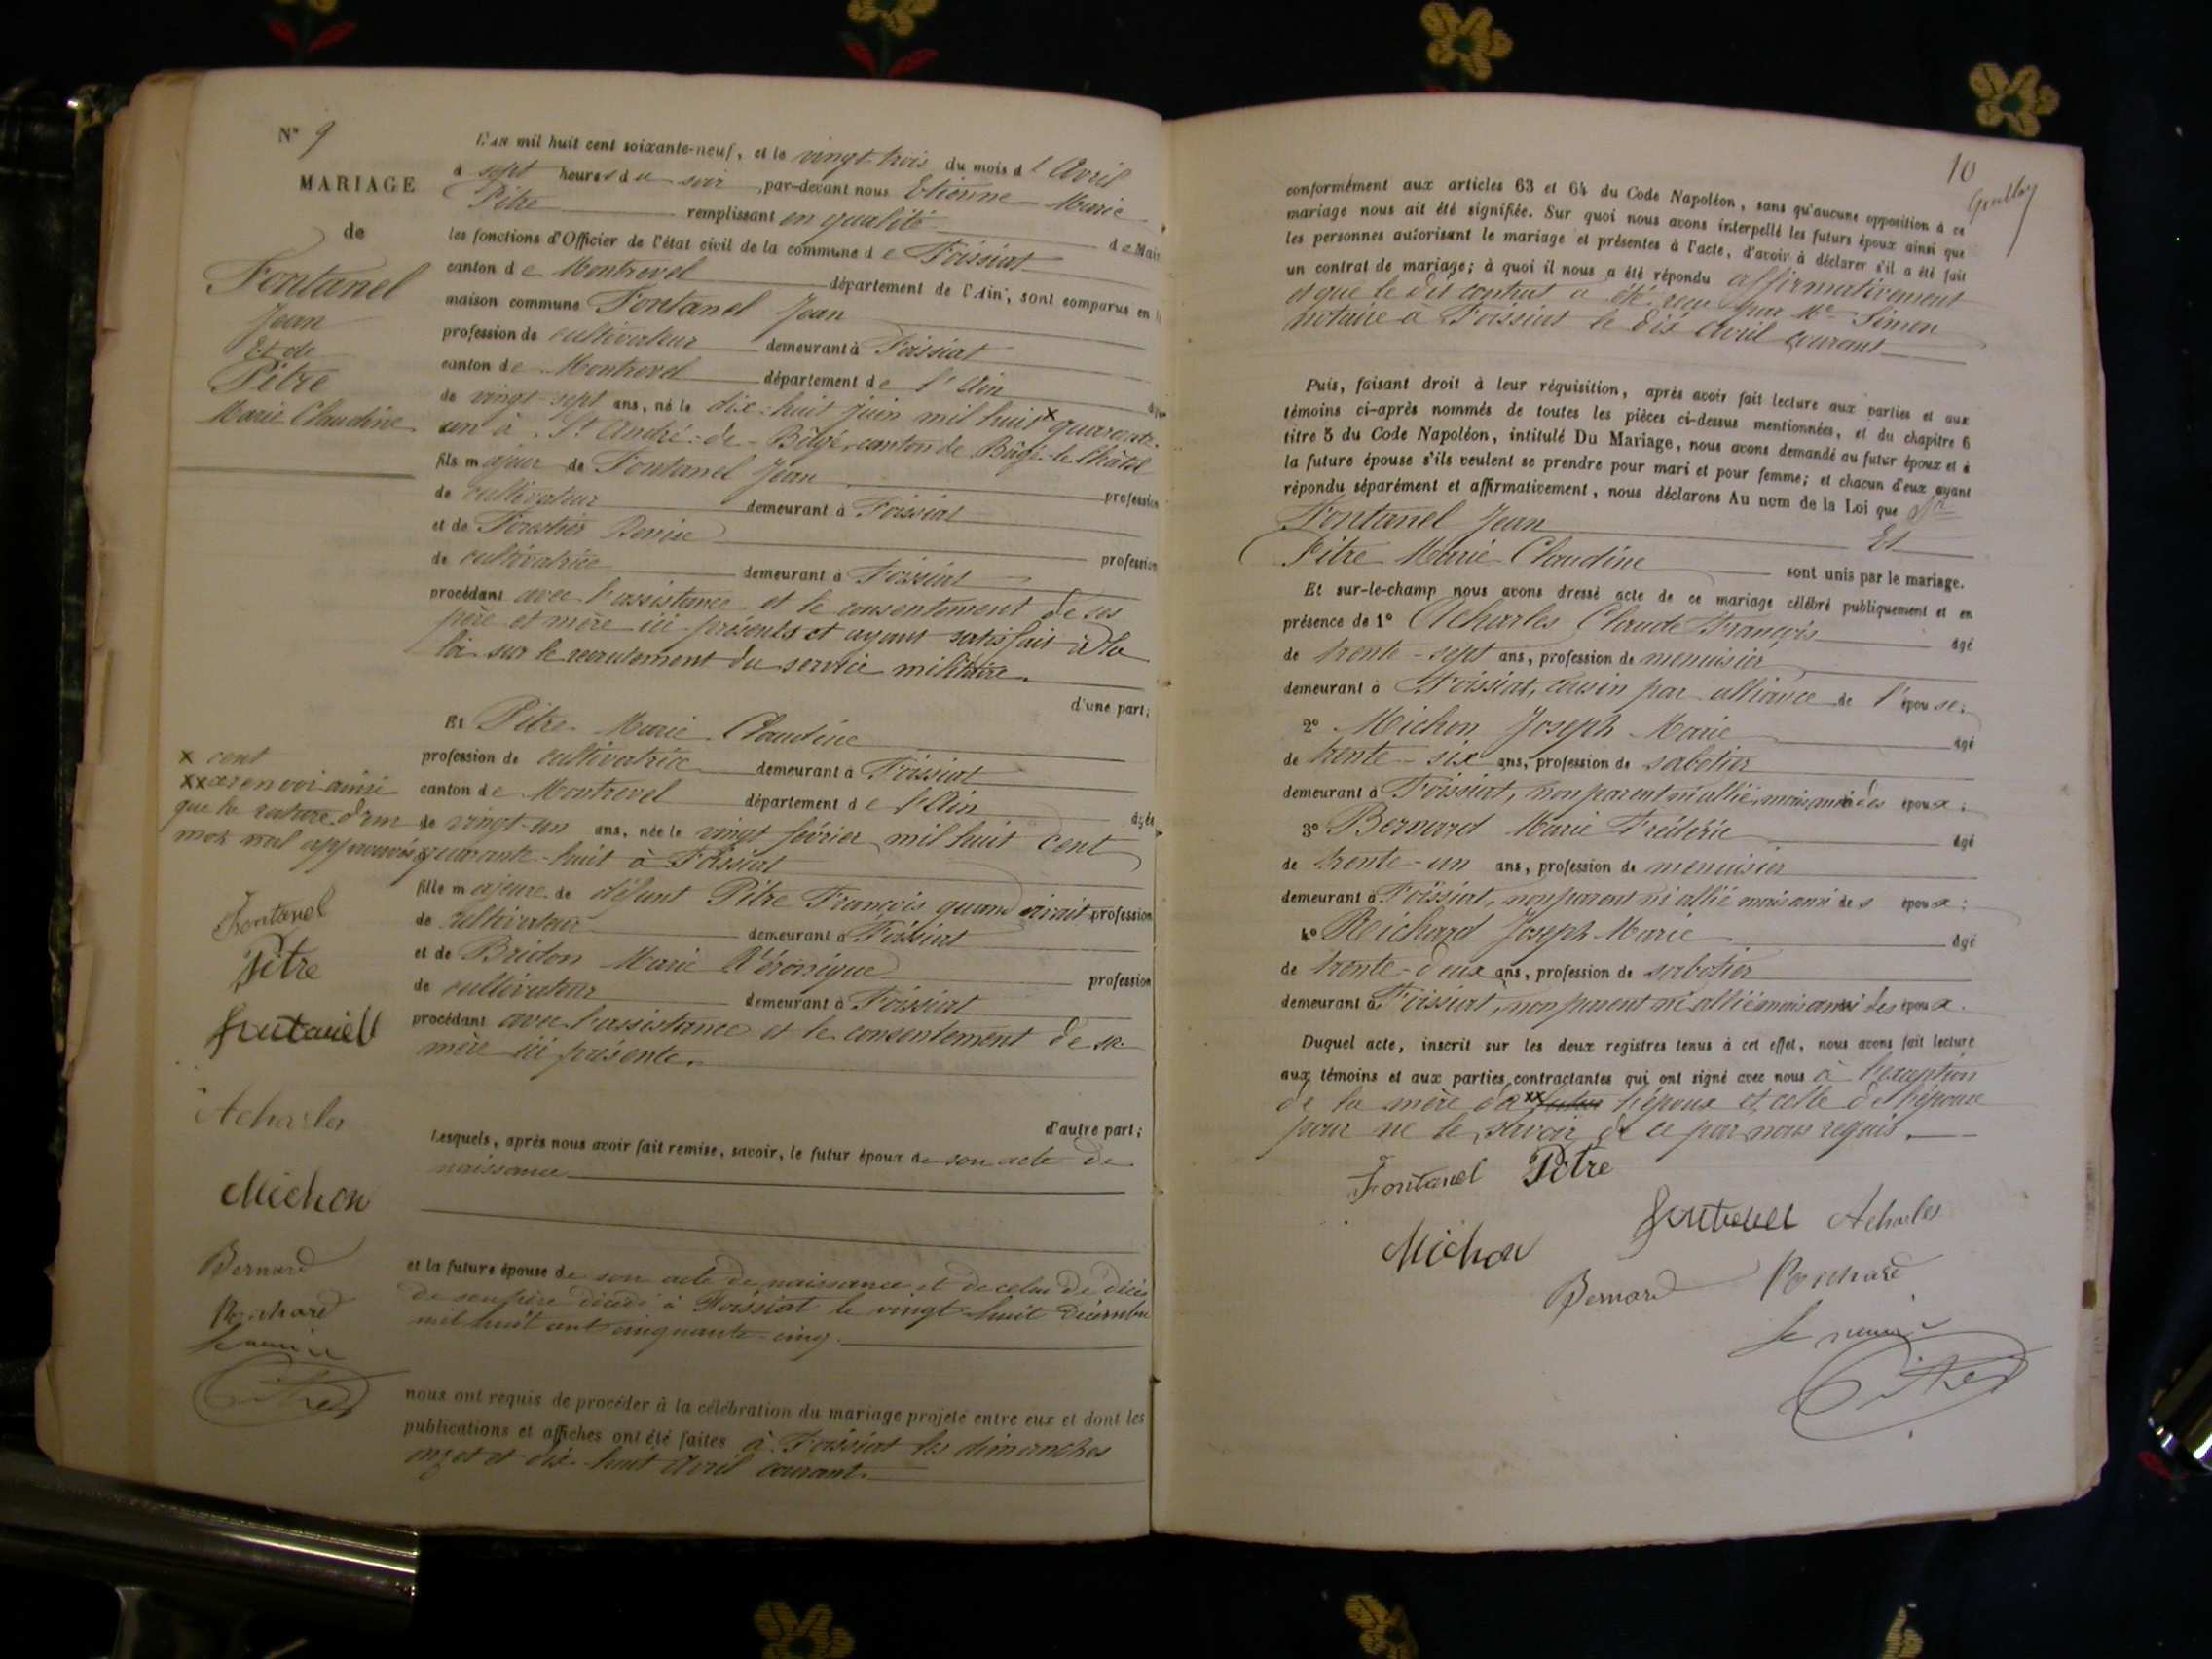 N° 9
MARIAGE
de
Fontanel
Jean
Et de
Pitre
Marie Claudine
L'an mil huit cent soixante-neuf, et le vingt trois du mois d'Avril
à sept heures du soir, par-devant nous Etienne Marie
Pitre remplissant en qualité de Maire
les fonctions d'Officier de l'état civil de la commune de Foissiat
canton de Montrevel département de l'Ain, sont comparus en la
maison commune Fontanel Jean
profession de cultivateur demeurant à Foissiat
canton de Montrevel département de l'Ain âgé
de vingt-sept ans, né le dix-huit juin mil huit x quarante-
un à St André-de-Bâgé, canton de Bâgé-le-Châtel
fils majeur de Fontanel Jean profession
de cultivateur demeurant à Foissiat
et de Benise profession
de cultivatrice demeurant à Foissiat
procédant avec l'assistance et le consentement de ses
père et mère ici présents et ayant satisfait à la
loi sur le recrutement du service militaire.
d'une part;
Et Pitre Marie Claudine
profession de cultivatrice demeurant à Foissiat
canton de Montrevel département de l'Ain âgée
de vingt-un ans, née le vingt février mil huit cent
quarante-huit à Foissiat
fille majeure de défunt Pitre François quand vivait profession
de cultivateur demeurant à Foissiat
et de Bridon Marie Véronique profession
de cultivateur demeurant à Foissiat
procédant avec l'assistance et le consentement de sa
mère ici présente.
d'autre part;
Lesquels, après nous avoir fait remise, savoir, le futur époux de son acte de
naissance
et la future épouse de son acte de naissance et de celui de décès
de son père décédé à Foissiat le vingt-huit Décembre
mil huit cent cinquante-cinq.
nous ont requis de procéder à la célébration du mariage projeté entre eux et dont les
publications et affiches ont été faites à Foissiat les dimanches
onze et dix-huit Avril courant.
x cent
xx renvoi ainsi
que la rature d'un
mot nul approuvés
Fontanel
Pitre
fontanel
Acharles
Michon
Bernard
Reichard
Le maire
Pitre
10
conformément aux articles 63 et 64 du Code Napoléon, sans qu'aucune opposition à ce
mariage nous ait été signifiée. Sur quoi nous avons interpellé les futurs époux ainsi que
les personnes autorisant le mariage et présentes à l'acte, d'avoir à déclarer s'il a été fait
un contrat de mariage; à quoi il nous a été répondu affirmativement
et que le dit contrat a été reçu par Me Simon
notaire à Foissiat le dix Avril courant
Puis, faisant droit à leur réquisition, après avoir fait lecture aux parties et aux
témoins ci-après nommés de toutes les pièces ci-dessus mentionnées, et du chapitre 6
titre 5 du Code Napoléon, intitulé Du Mariage, nous avons demandé au futur époux et à
la future épouse s'ils veulent se prendre pour mari et pour femme; et chacun d'eux ayant
répondu séparément et affirmativement, nous déclarons Au nom de la Loi que
Fontanel Jean Et
Pitre Marie Claudine sont unis par le mariage.
Et sur-le-champ nous avons dressé acte de ce mariage célébré publiquement et en
présence de 1° Acharles Claude François âgé
de trente-sept ans, profession de menuisier
demeurant à Foissiat, cousin par alliance de l'épouse;
2° Michon Joseph Marie âgé
de trente-six ans, profession de sabotier
demeurant à Foissiat, non parent ni allié mais ami des époux;
3° Bernard Marie Fréderic âgé
de trente-un ans, profession de menuisier
demeurant à Foissiat, non parent ni allié mais ami des époux;
4° Reichard Joseph Marie âgé
de trente-deux ans, profession de sabotier
demeurant à Foissiat, non parent ni allié mais ami des époux.
Duquel acte, inscrit sur les deux registres tenus à cet effet, nous avons fait lecture
aux témoins et aux parties contractantes qui ont signé avec nous à l'exception
de la mère de xx l'époux et celle de l'épouse
pour ne le savoir de ce par nous requis.
Fontanel Pitre
fontanel Acharles
Michon
Bernard Reichard
Le maire
Pitre